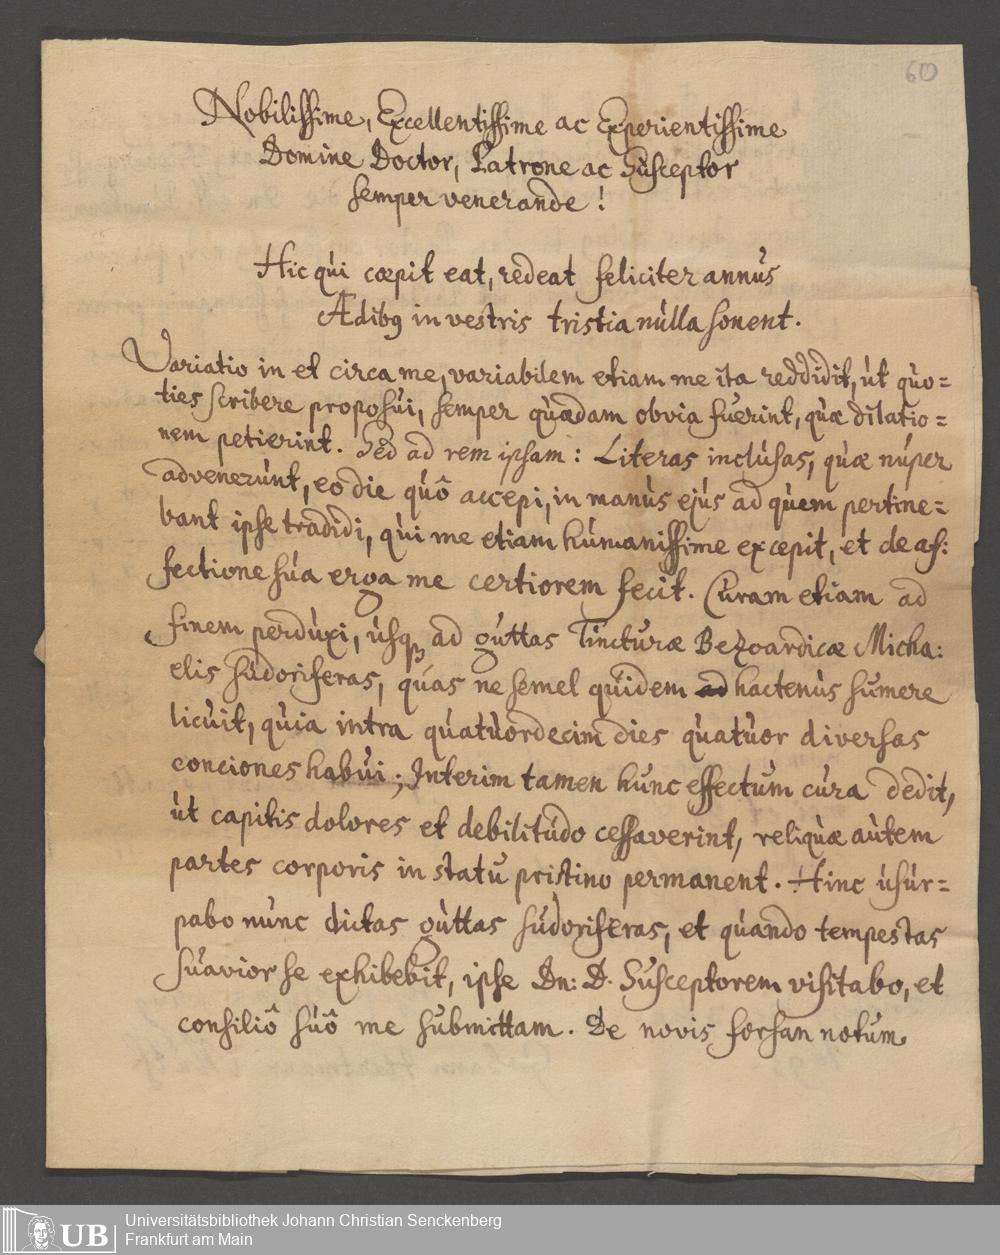 60
Nobilissime, Excellentissime ac Experientissime
Domine Doctor, Patrone ac Susceptor
semper venerande!
Hic qùi cœpit eat, redeat feliciter annùs
Ædibꝰ in vestris tristia nùlla sonent.
Variatio in et circa me, variabilem etiam me ita reddidit, ùt qùo=
ties scribere proposùi, semper qùædam obvia fùerint, qùæ dilatio=
nem petierint. Sed ad rem ipsam: Literas inclùsas, qùæ nùper
advenerùnt, eo die qùô accepi, in manùs ejùs ad qùem pertine=
bant ipse tradidi, qùi me etiam hùmanissime excepit, et de af:
fectione sùa erga me certiorem fecit. Cùram etiam ad
finem perdùxi, ùsqꝫ ad gùttas Tinctùræ Bezoardicæ Micha:
elis sùdoriferas, qùas ne semel qùidem hactenùs sùmere
licùit, qùia intra qùatùordecim dies qùatùor diversas
conciones habùi; Interim tamen hùnc effectùm cùra dedit,
ùt capitis dolores et debilitùdo cessaverint, reliqùæ aùtem
partes corporis in statù pristino permanent. Hinc ùsùr=
pabo nùnc dictas gùttas sùdoriferas, et qùando tempestas
sùavior se exhibebit, ipse Dn: D. Sùsceptorem visitabo, et
consiliô sùô me sùbmittam. De novis forsan notùm
UB
Universitätsbibliothek Johann Christian Senckenberg
Frankfurt am Main